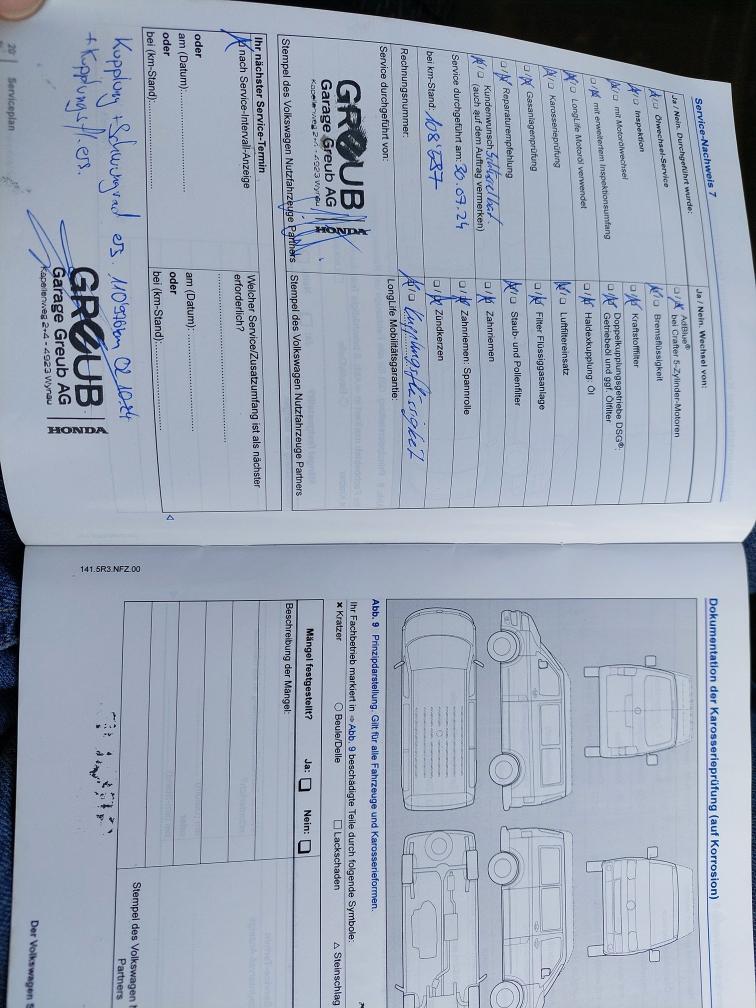 Service-Nachweis 7
Ja / Nein. Durchgeführt wurde:
Ölwechsel-Service
Inspektion
mit Motorölwechsel
mit erweitertem Inspektionsumfang
LongLife Motoröl verwendet
Karosserieprüfung
Gasanlagenprüfung
Reparaturempfehlung
Kundenwunsch
(auch auf dem Auftrag vermerken)
Service durchgeführt am: 30.07.24
bei km-Stand: 108'687
Rechnungsnummer:
Service durchgeführt von:
GREUB
Garage Greub AG
Kapellenweg 2+4 - 4923 Wynau
HONDA
Stempel des Volkswagen Nutzfahrzeuge Partners
Ihr nächster Service-Termin
nach Service-Intervall-Anzeige
oder
am (Datum):
oder
bei (km-Stand):
Ja / Nein. Wechsel von:
AdBlue®
bei Crafter 5-Zylinder-Motoren
Bremsflüssigkeit
Kraftstofffilter
Doppelkupplungsgetriebe DSG®:
Getriebeöl und ggf. Ölfilter
Haldexkupplung: Öl
Luftfiltereinsatz
Filter Flüssiggasanlage
Staub- und Pollenfilter
Zahnriemen
Zahnriemen: Spannrolle
Zündkerzen
Kupplungsflüssigkeit
LongLife Mobilitätsgarantie:
Stempel des Volkswagen Nutzfahrzeuge Partners
Welcher Service/Zusatzumfang ist als nächster
erforderlich?
am (Datum):
oder
bei (km-Stand):
Kupplung + Schwungrad ers.
+ Kupplungsfl. ers.
GREUB
Garage Greub AG
Kapellenweg 2+4 - 4923 Wynau
HONDA
20 Serviceplan
Dokumentation der Karosserieprüfung (auf Korrosion)
Abb. 9 Prinzipdarstellung. Gilt für alle Fahrzeuge und Karosserieformen.
Ihr Fachbetrieb markiert in ⇒ Abb. 9 beschädigte Teile durch folgende Symbole:
✖ Kratzer ○ Beule/Delle □ Lackschaden △ Steinschlag
Mängel festgestellt? Ja: Nein:
Beschreibung der Mängel:
Stempel des Volkswagen
Partners
141.5R3.NFZ.00
Der Volkswagen